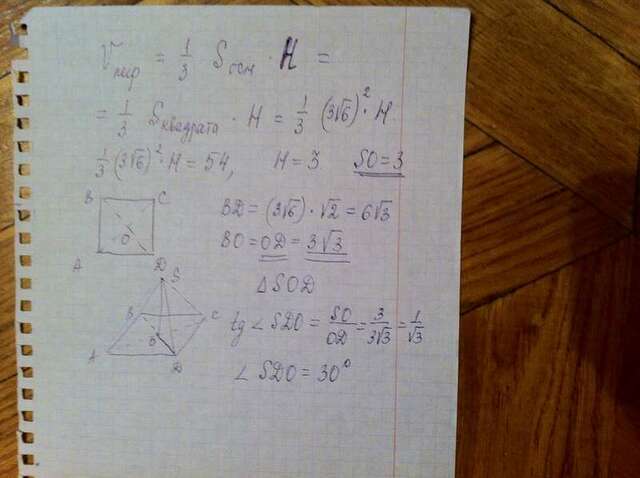 Vпир = 1/3 Sосн · H =
= 1/3 Sквадрата · H = 1/3 (3√6)² · H
1/3 (3√6)² · H = 54, H = 3 SO = 3
B C
A D
O
BD = (3√6) · √2 = 6√3
BO = OD = 3√3
△SOD
S
B C
O
A D
tg ∠ SDO = SO/OD = 3/3√3 = 1/√3
∠ SDO = 30°